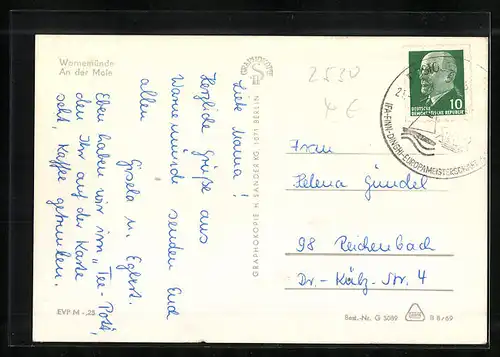 Warnemünde
An der Mole
Liebe Mama!
Herzliche Grüße aus
Warnemünde senden Euch
allen
Gisela u. Egbert.
Eben haben wir im "Tee-Pott",
den Ihr auf der Karte
seht, Kaffee getrunken.
EVP M -,25
GRAPHOKOPIE
GRAPHOKOPIE H. SANDERRG 1071 BERLIN
2530
4 €
DEUTSCHE
DEMOKRATISCHE REPUBLIK
10
IFA-FINN-DINGHI-EUROPAMEISTERSCHAFT
Frau
Helena Gündel
98 Reichenbach
Dr.-Külz-Str. 4
Best.-Nr. G 5089
III 8/69